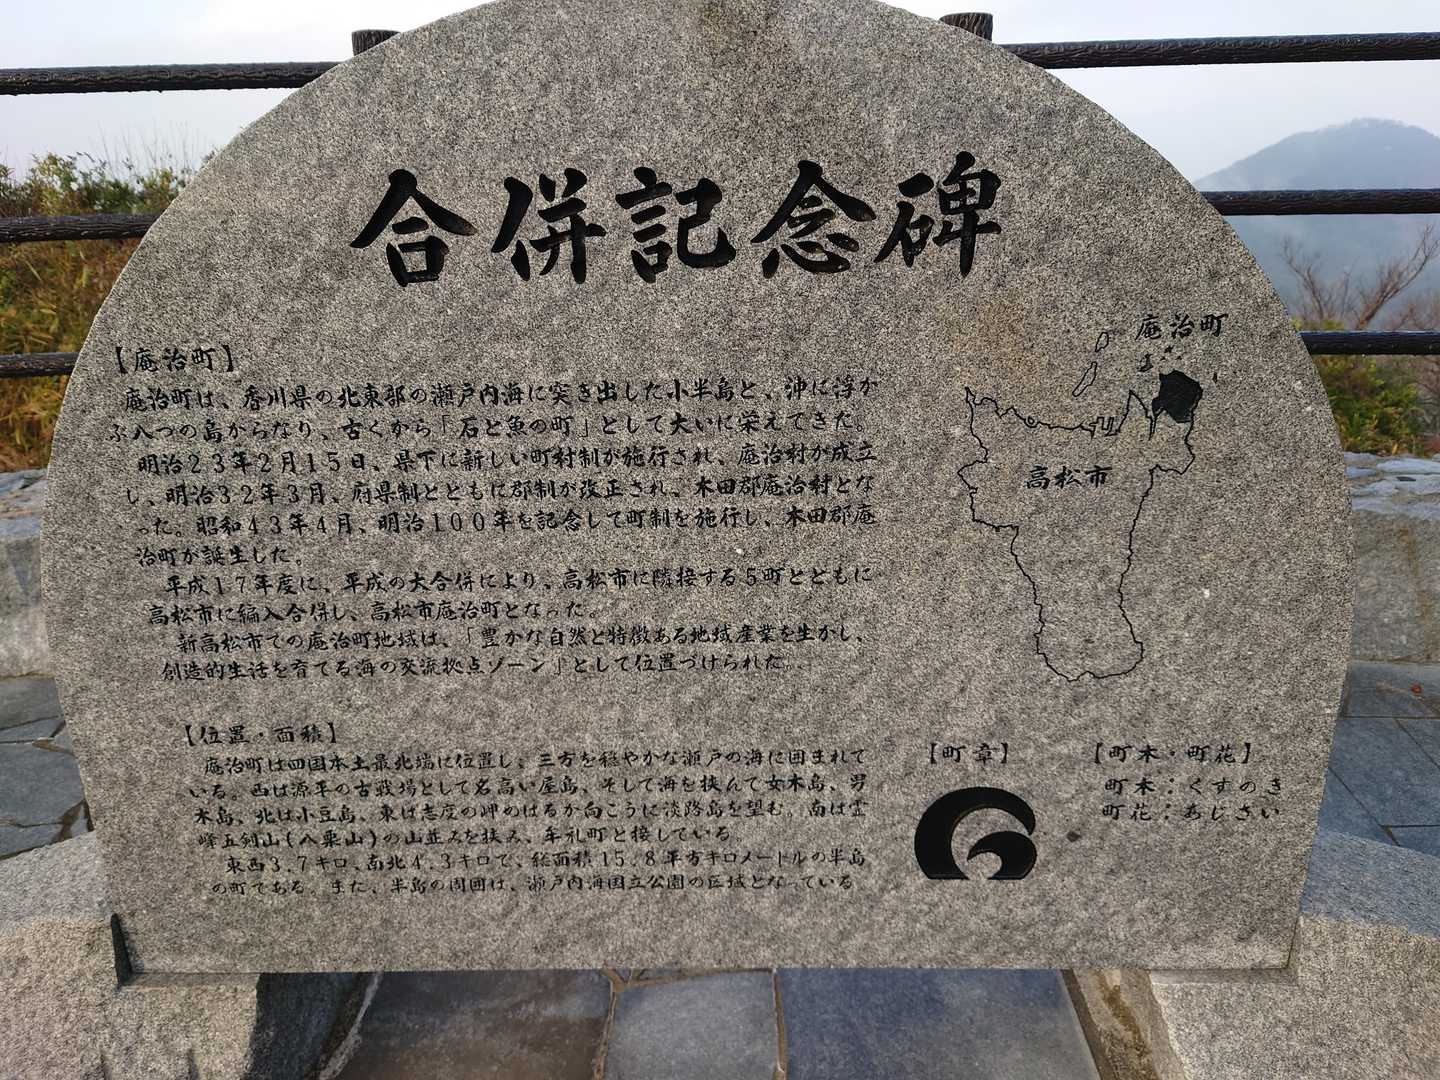 合併記念碑
【庵治町】
庵治町は、香川県の北東部の瀬戸内海に突き出した小半島と、沖に浮か
ぶ八つの島からなり、古くから「石と魚の町」として大いに栄えてきた。
明治23年2月15日、県下に新しい町村制が施行され、庵治村が成立
し、明治32年3月、府県制とともに郡制が改正され、木田郡庵治村とな
った。昭和43年4月、明治100年を記念して町制を施行し、木田郡庵
治町が誕生した。
平成17年度に、平成の大合併により、高松市に隣接する5町とともに
高松市に編入合併し、高松市庵治町となった。
新高松市での庵治町地域は、「豊かな自然と特徴ある地域産業を生かし、
創造的生活を育てる海の交流拠点ゾーン」として位置づけられた。
【位置・面積】
庵治町は四国本土最北端に位置し、三方を穏やかな瀬戸の海に囲まれて
いる。西は源平の古戦場として名高い屋島、そして海を挟んで女木島、男
木島、北は小豆島、東は志度の岬のはるか向こうに淡路島を望む。南は霊
峰五剣山(八栗山)の山並みを挟み、牟礼町と接している
東西3.7キロ、南北4.3キロで、総面積15.8平方キロメートルの半島
の町である。また、半島の周囲は、瀬戸内海国立公園の区域となっている
庵治町
高松市
【町章】
【町木・町花】
町木：くすのき
町花：あじさい